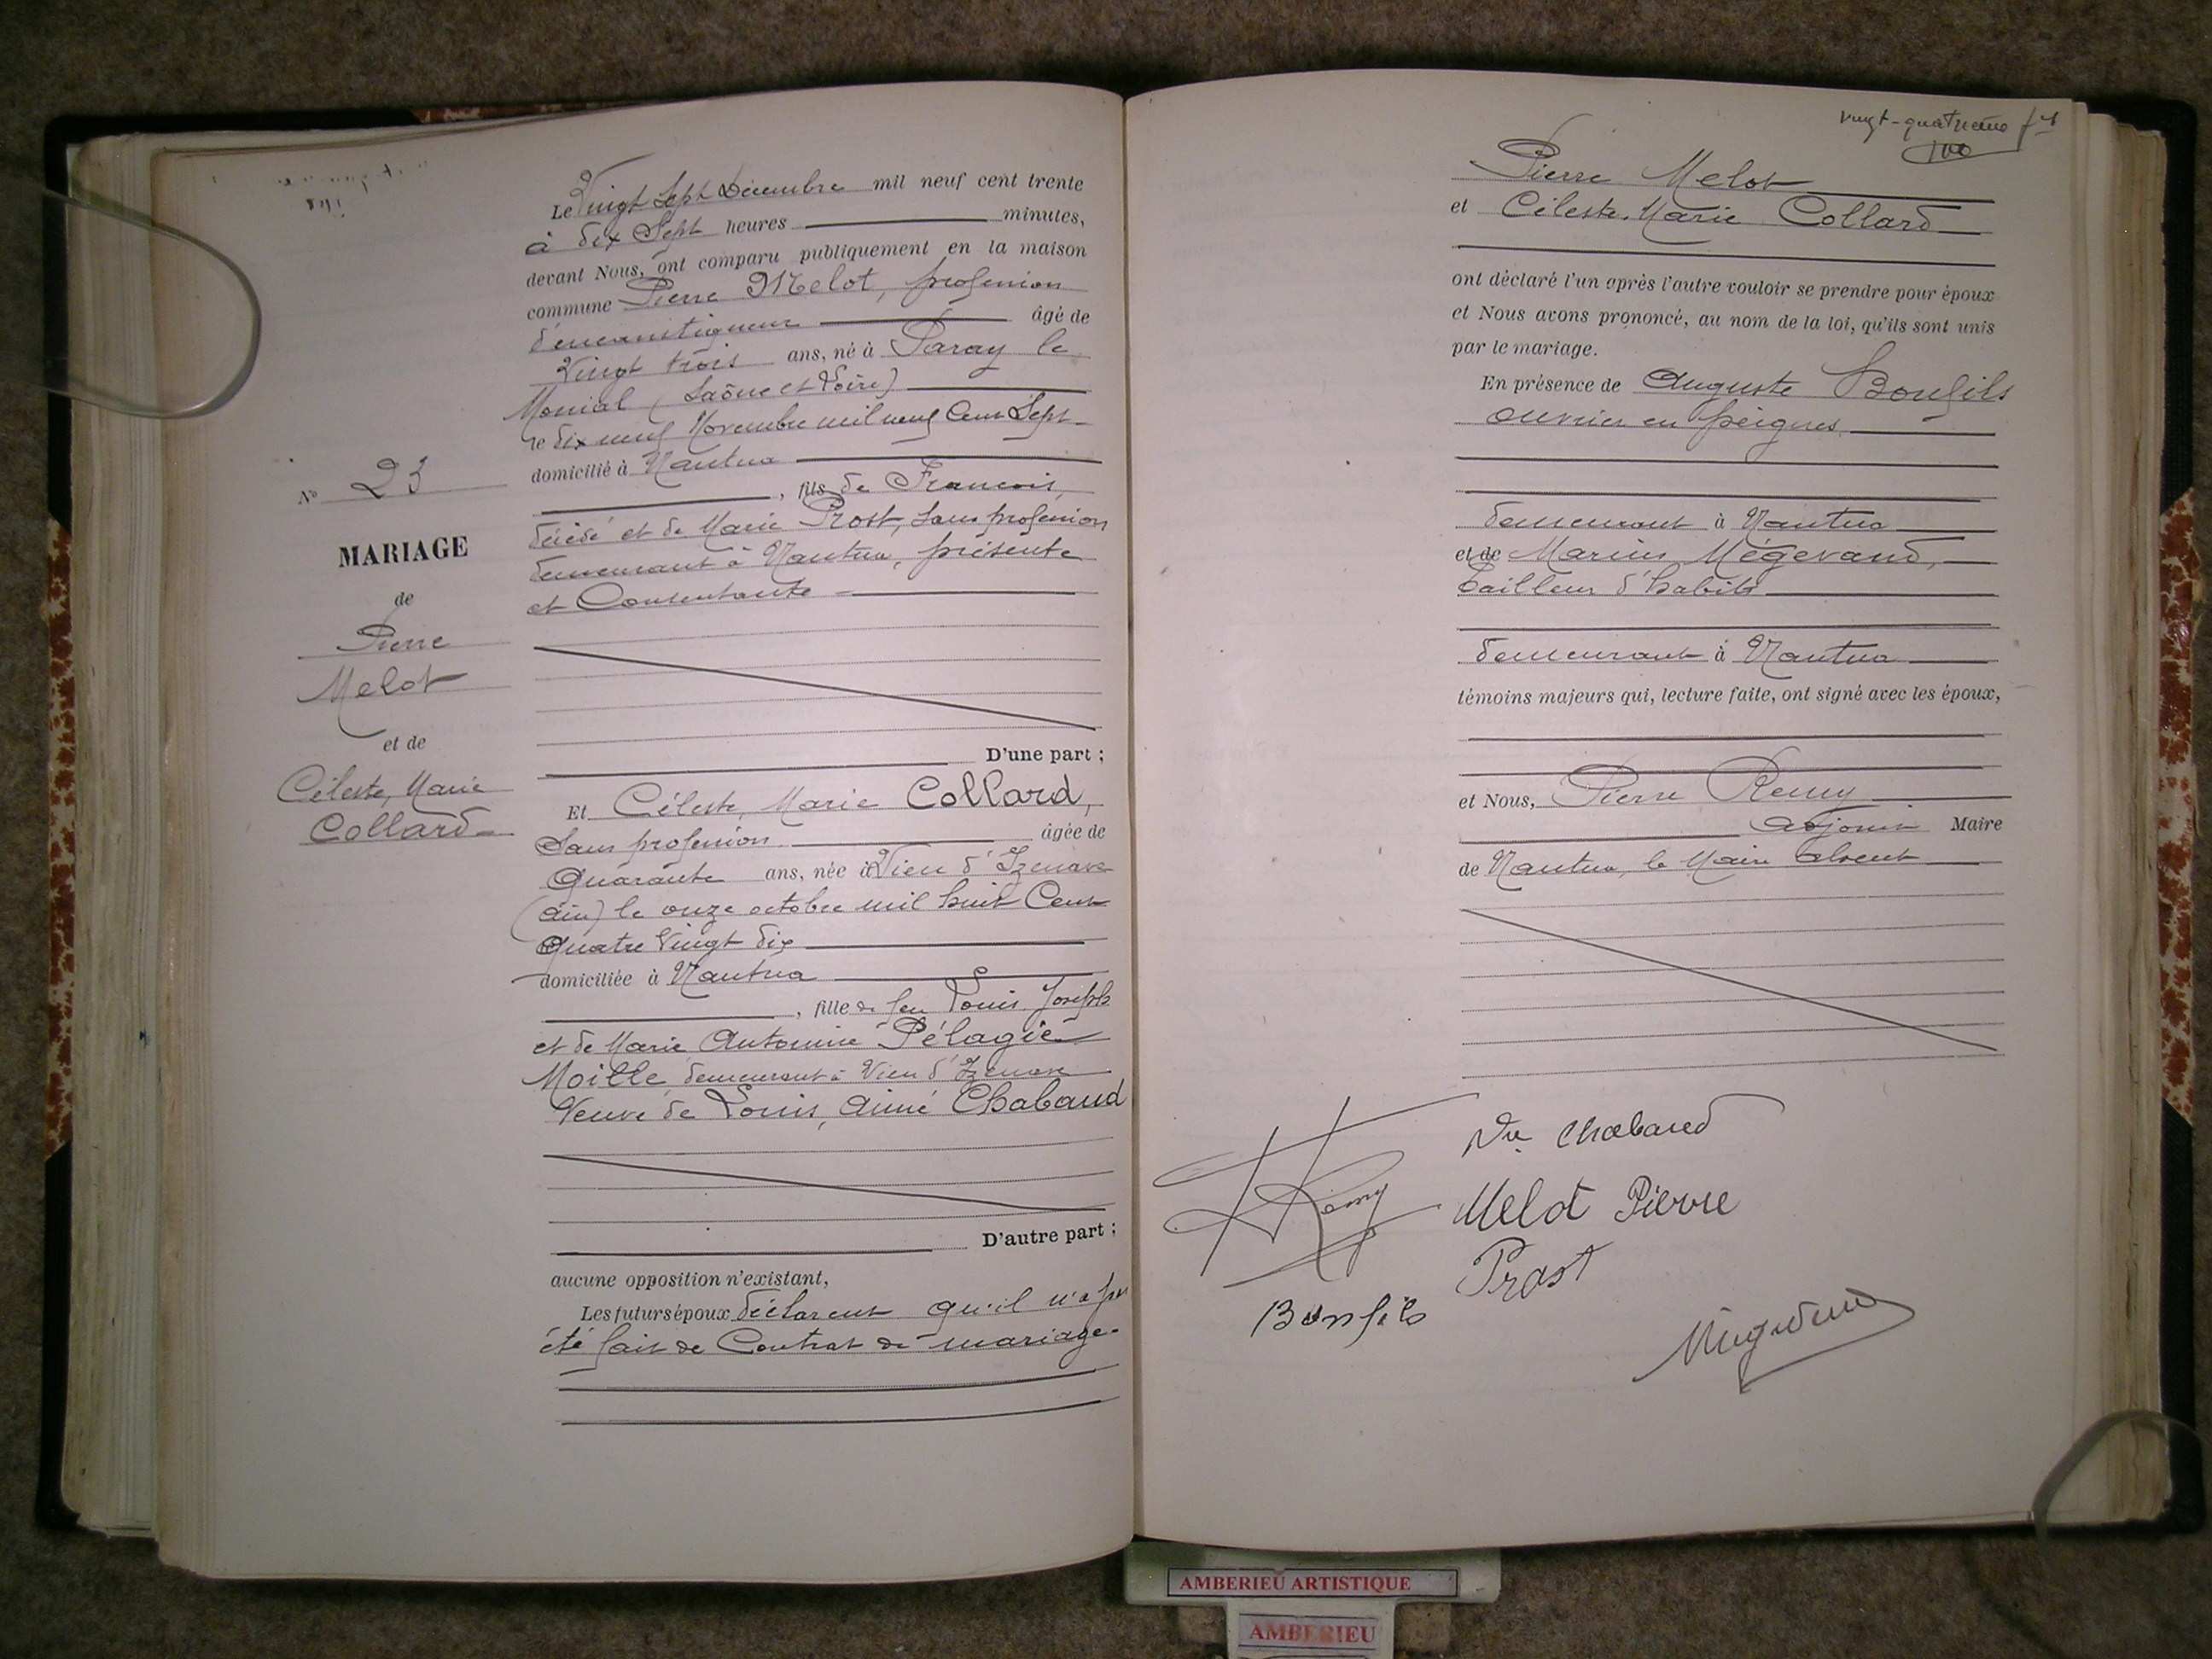 N° 23
MARIAGE
de
Pierre
Melot
et de
Céleste, Marie
Collard
Le Vingt Sept Décembre mil neuf cent trente
à dix Sept heures minutes,
devant Nous, ont comparu publiquement en la maison
commune Pierre Melot, profession
d'encaustiqueur âgé de
Vingt trois ans, né à Paray le
Monial (Saône et Loire)
le dix neuf Novembre mil neuf Cent Sept
domicilié à Nantua
, fils de Francois,
décédé et de Marie Prost, Sans profession
demeurant à Nantua, présente
et Consentante
D'une part ;
Et Céleste, Marie Collard,
Sans profession âgée de
Quarante ans, née à Vieu d'Izenave
(Ain) le onze octobre mil huit Cent
Quatre Vingt dix
domiciliée à Nantua
, fille de feu Louis Joseph
et de Marie Antoinie Pélagie
Moille demeurant à Vieu d'Izenave
Veuve de Louis, Aimé Chabaud
D'autre part ;
aucune opposition n'existant,
Les futurs époux déclarent qu'il n'a pas
été fait de Contrat de mariage.
vingt-quatrieme ft
Pierre Melot
et Céleste. Marie Collard
ont déclaré l'un après l'autre vouloir se prendre pour époux
et Nous avons prononcé, au nom de la loi, qu'ils sont unis
par le mariage.
En présence de Auguste Bonfils
ouvrier en peignes
demeurant à Nantua
et de Marius Mégevand,
tailleur d'habits
demeurant à Nantua
témoins majeurs qui, lecture faite, ont signé avec les époux,
et Nous, Pierre Remy
adjoint Maire
de Nantua, le Maire absent
Vve Chabaud
Remy
Melot Pierre
Prost
Bonfils
Mégevand
AMBERIEU ARTISTIQUE
AMBERIEU